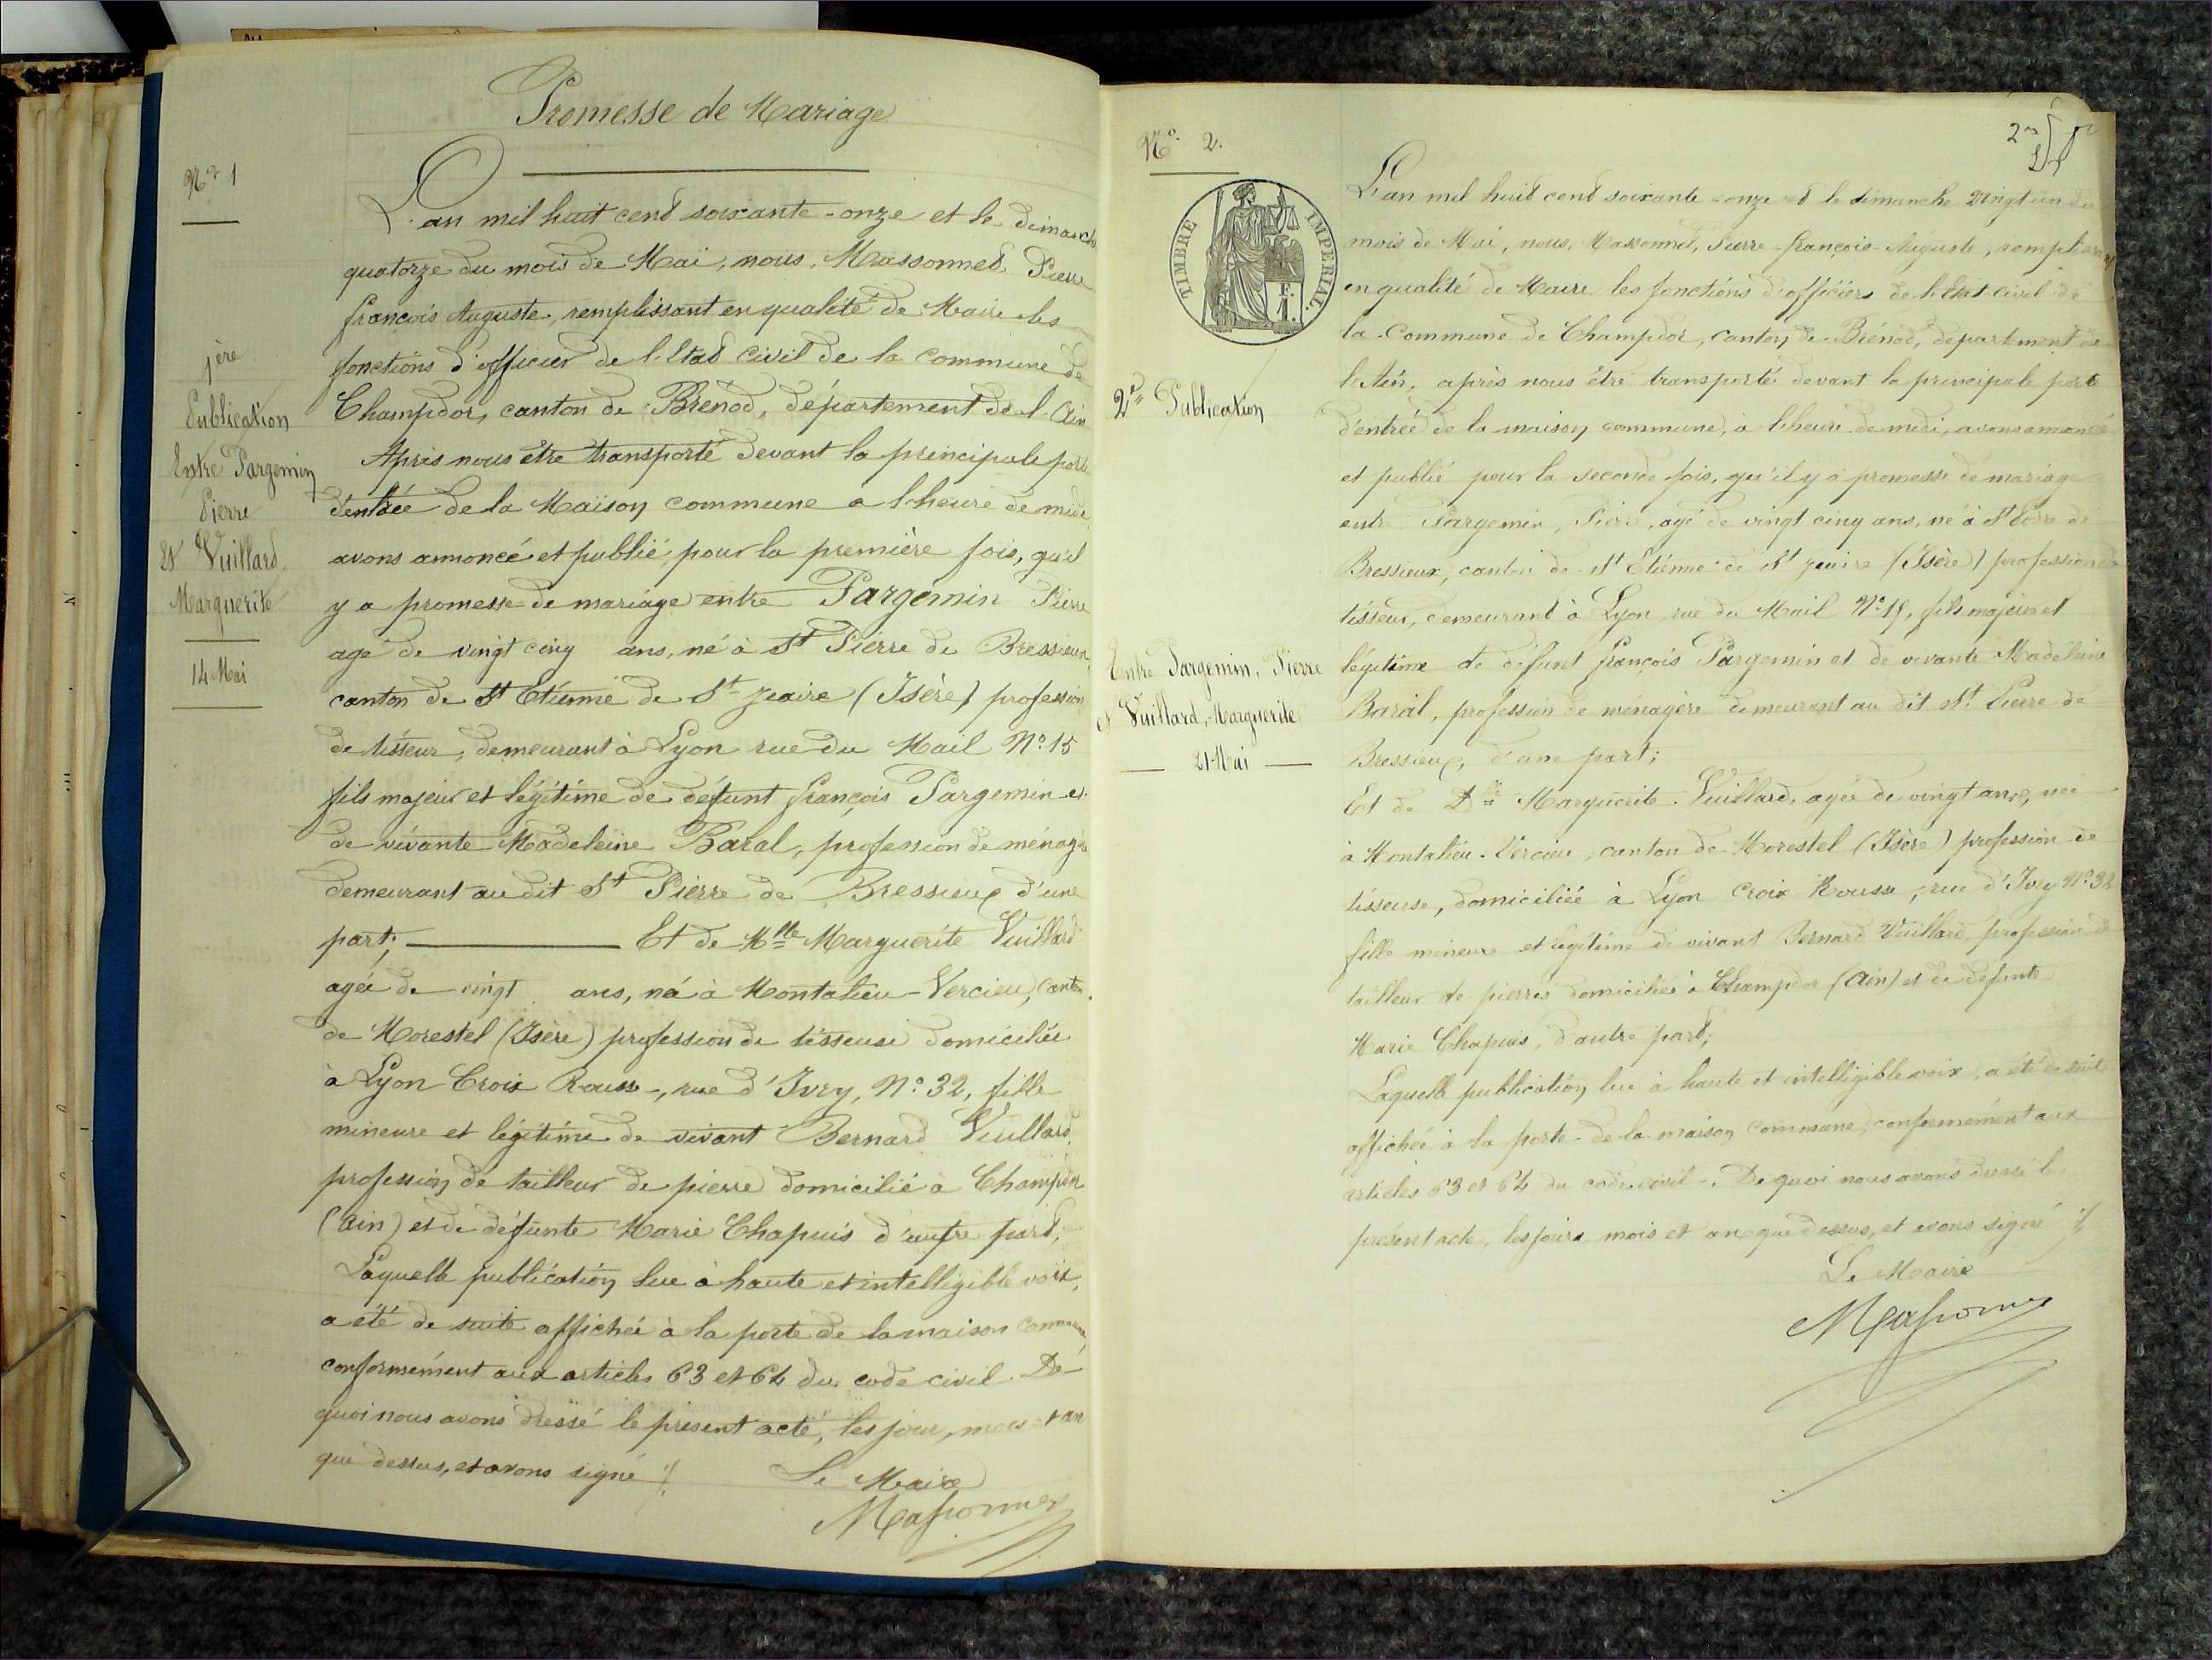 Promesse de Mariage
N° 1
L'an mil huit cent soixante-onze et le dimanche
quatorze du mois de Mai, nous, Massonnet Pierre
françois Auguste, remplissant en qualité de Maire les
fonctions d'officier de l'Etat civil de la commune de
Champdor, canton de Brénod, département de l'Ain
Après nous être transporté devant la principale porte
d'entrée de la Maison commune a l'heure de midi,
avons annoncé et publié pour la première fois, qu'il
y a promesse de mariage entre Pargemin Pierre
agé de vingt cinq ans, né à St Pierre de Bressieux,
canton de St Etienne de St Jeoire (Isère) profession
de tisseur, demeurant à Lyon rue du Mail N° 15
fils majeur et légitime de défunt françois Pargemin et
de vivante Madeleine Baral, profession de ménagère
demeurant au dit St Pierre de Bressieux d'une
part; Et de Mlle Marguerite Vuillard
agée de vingt ans, né à Montalieu-Vercieu, canton
de Morestel (Isère) profession de tisseuse domiciliée
à Lyon Croix Rousse, rue d'Ivry, N° 32, fille
mineure et légitime de vivant Bernard Vuillard,
profession de tailleur de pierre domicilié à Champdor
(Ain) et de défunte Marie Chapuis d'autre part,
Laquelle publication lue à haute et intelligible voix,
a été de suite affichée à la porte de la maison commune,
conformément aux articles 63 et 64 du code civil. De
quoi nous avons dressé le présent acte, les jour, mois et an
que dessus, et avons signé
Le Maire
Massonnet
1ère
Publication
Entre Pargemin
Pierre
Et Vuillard
Marguerite
14 Mai
N° 2.
TIMBRE IMPERIAL
F.
1.
L'an mil huit cent soixante-onze et le dimanche vingt un du
mois de Mai, nous, Massonnet, Pierre-françois-Auguste, remplissant
en qualité de Maire les fonctions d'officiers de l'Etat civil de
la Commune de Champdor, canton de Brénod, département de
l'Ain, après nous être transporté devant la principale porte
d'entrée de la maison commune, à l'heure de midi, avons annoncé
et publié pour la seconde fois, qu'il y a promesse de mariage
entre Pargemin, Pierre, agé de vingt cinq ans, né à St Pierre de
Bressieux, canton de St Etienne de St Jeoire (Isère) profession de
tisseur, demeurant à Lyon, rue du Mail N° 15, fils majeur et
légitime de défunt françois Pargemin et de vivante Madeleine
Baral, profession de ménagère demeurant au dit St. Pierre de
Bressieux, d'une part;
Et de Dlle Marguerite Vuillard, agée de vingt ans, née
à Montalieu-Vercieu, canton de Morestel (Isère) profession de
tisseuse, domiciliée à Lyon Croix Rousse, rue d'Ivry N° 32
fille mineure et légitime de vivant Bernard Vuillard, profession de
tailleur de pierres domiciliée à Champdor (Ain) et de défunte
Marie Chapuis, d'autre part;
Laquelle publication lue à haute et intelligible voix, a été de suite
affichée à la porte de la maison commune, conformément aux
articles 63 et 64 du code civil. De quoi nous avons dressé le
présent acte, les jours mois et an que dessus, et avons signé
Le Maire
Massonnet
2e Publication
Entre Pargemin, Pierre
et Vuillard, Marguerite
21 Mai